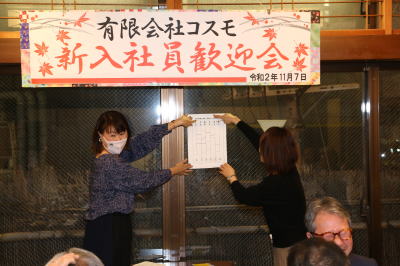 有限会社コスモ
新入社員歓迎会
令和2年11月7日